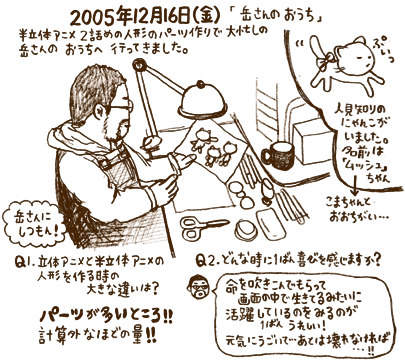 2005年12月16日(金)「岳さんのおうち」
半立体アニメ2話めの人形のパーツ作りで大忙しの
岳さんの おうちへ 行ってきました。
ぷいっ
人見知りの
にゃんこが
いました。
名前は
「ムッシュ」
ちゃん
こまちゃんと
おおちがい…
岳さんに
しつもん!
Q1.立体アニメと半立体アニメの
人形を作る時の
大きな違いは?
パーツが多いところ!!
計算外なほどの量!!
Q2.どんな時に1ばん喜びを感じますか?
命を吹きこんでもらって
画面の中で生きてるみたいに
活躍しているのをみるのが
1ばん うれしい!
元気にうごいで…あとは壊れなければ
…!!